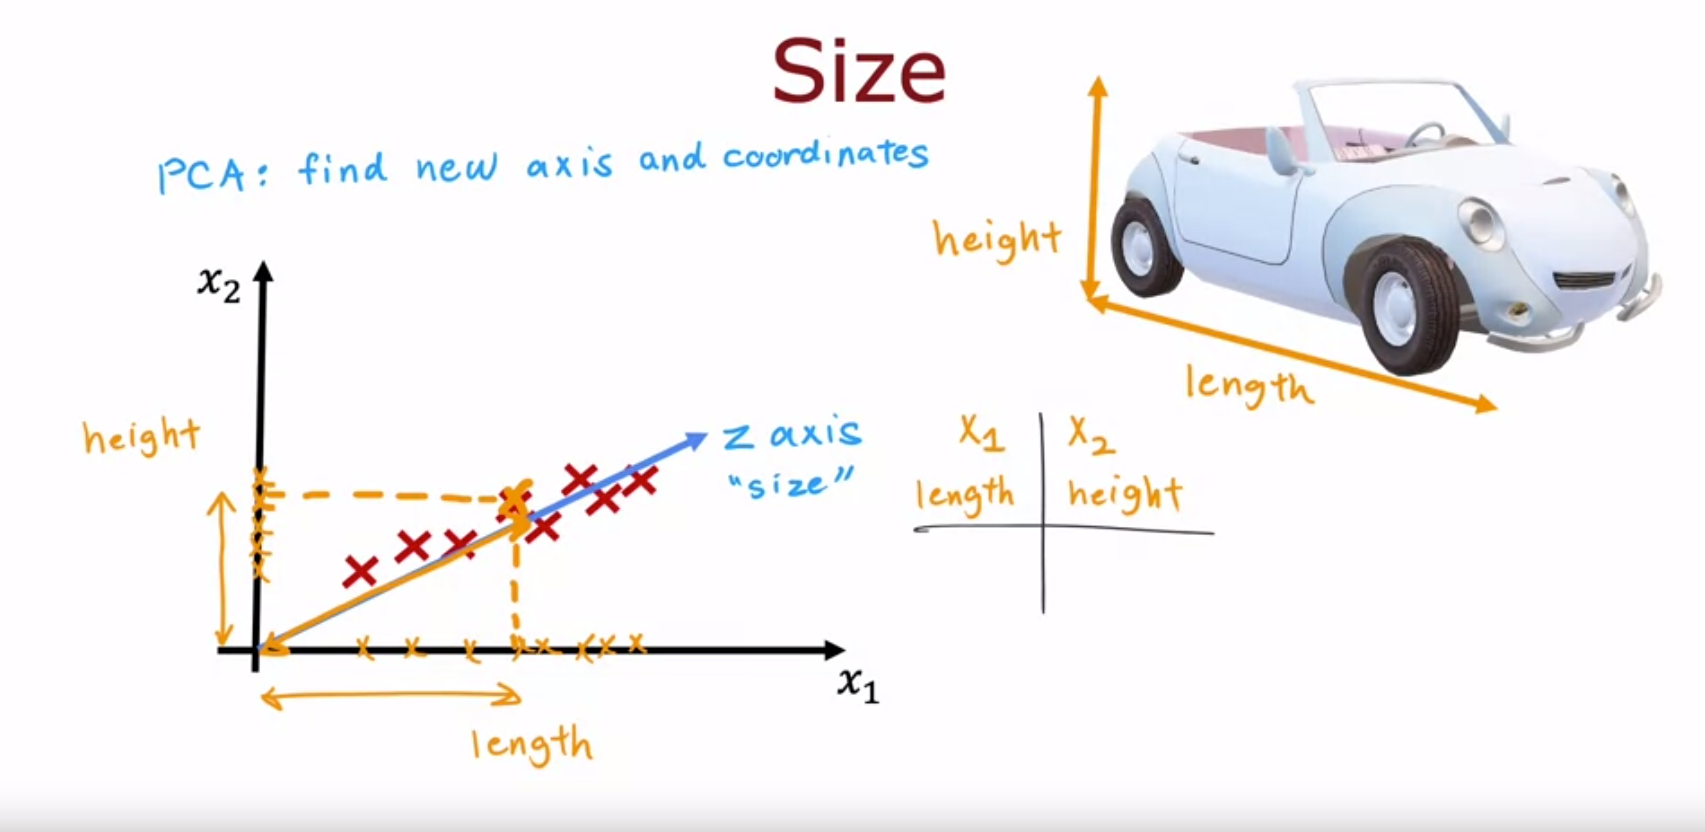 Size
PCA: find new axis and coordinates
height
length
x₂
height
z axis
"size"
x₁
length
X₁ X₂
length height